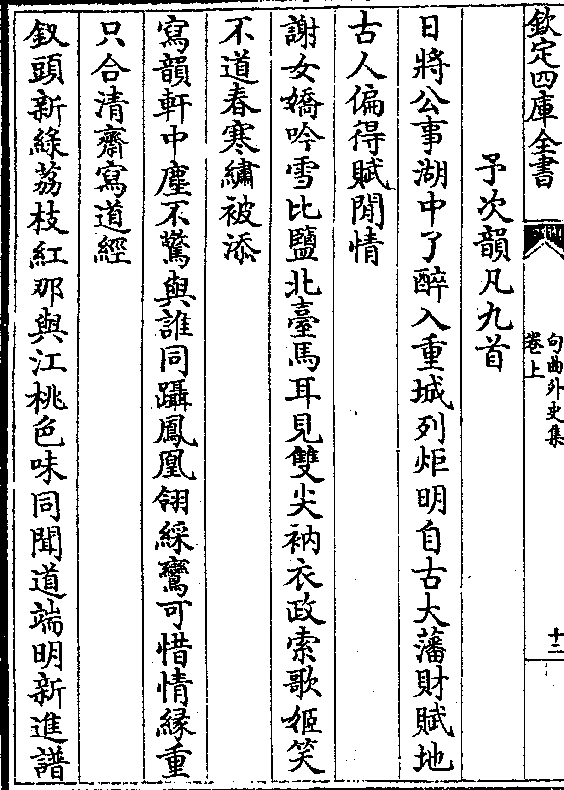 欽定四庫全書
句曲外史集
卷上
十二
予次韻凡九首
日將公事湖中了醉入重城列炬明自古大藩財賦地
古人偏得賦閒情
謝女嬌吟雪比鹽北臺馬耳見雙尖衲衣政索歌姬笑
不道春寒繡被添
寫韻軒中塵不驚與誰同躡鳳凰翎綵鸞可惜情緣重
只合清齋寫道經
釵頭新綠荔枝紅那與江桃色味同聞道端明新進譜